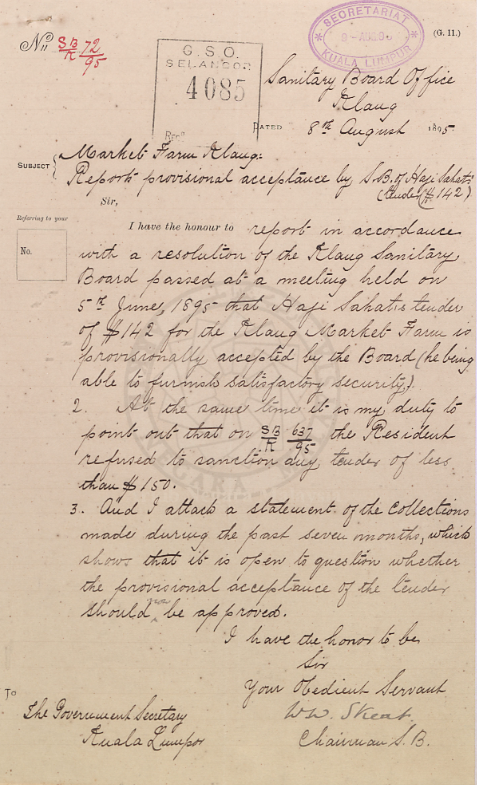 No. SB/K 72/95
G.S.O.
SELANGOR
4085
SECRETARIAT
KUALA LUMPUR
(G. 11.)
Sanitary Board Office
Klang
DATED 8th August 1895
SUBJECT { Market Farm Klang:
Reports provisional acceptance by S.B. of Haji Sahat's
(tender $142)
Sir,
Referring to your
No.
I have the honour to report in accordance
with a resolution of the Klang Sanitary
Board passed at a meeting held on
5th June, 1895 that Haji Sahat's tender
of $142 for the Klang Market Farm is
provisionally accepted by the Board (he being
able to furnish satisfactory security).
2. At the same time it is my duty to
point out that on SB/K 637/95 the Resident
refused to sanction any tender of less
than $150.
3. And I attach a statement of the Collections
made during the past seven months, which
shows that it is open to question whether
the provisional acceptance of the tender
should be approved.
I have the honor to be
Sir
Your Obedient Servant
W.W. Skeat
Chairman S.B.
To
The Government Secretary
Kuala Lumpor